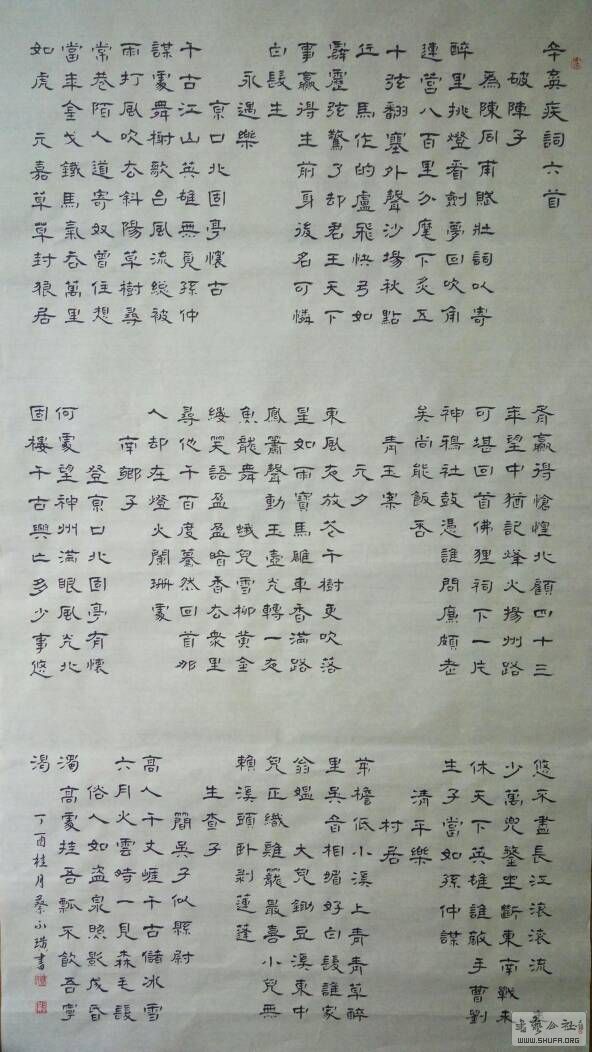 辛棄疾詞六首
破陣子
為陳同甫賦壯詞以寄
醉里挑燈看劍夢回吹角
連營八百里分麾下炙五
十弦翻塞外聲沙場秋點
兵 馬作的盧飛快弓如
霹靂弦驚了却君王天下
事贏得生前身後名可憐
白髮生
永遇樂
京口北固亭懷古
千古江山英雄無覓孫仲
謀處舞榭歌台風流總被
雨打風吹去斜陽草樹尋
常巷陌人道寄奴曾住想
當年金戈鐵馬氣吞萬里
如虎 元嘉草草封狼居
胥贏得愴惶北顧四十三
年望中猶記烽火揚州路
可堪回首佛狸祠下一片
神鴉社鼓憑誰問廉頗老
矣尚能飯否
青玉案
元夕
東風夜放花千樹更吹落
星如雨寶馬雕車香滿路
鳳簫聲動玉壺光轉一夜
魚龍舞 蛾兒雪柳黃金
縷笑語盈盈暗香去衆里
尋他千百度驀然回首那
人却在燈火闌珊處
南鄉子
登京口北固亭有懷
何處望神州滿眼風光北
固樓千古興亡多少事悠
悠不盡長江滾滾流 年
少萬兜鍪坐斷東南戰未
休天下英雄誰敵手曹劉
生子當如孫仲謀
清平樂
村居
茅檐低小溪上青青草醉
里吳音相媚好白髮誰家
翁媼 大兒鋤豆溪東中
兒正織雞籠最喜小兒無
賴溪頭臥剥蓮蓬
生查子
簡吳子似縣尉
高人千丈崖千古儲冰雪
六月火雲時一見森毛髮
俗人如盜泉照影成昏
濁高處挂吾瓢不飲吾寧
渴
丁酉桂月蔡永書
書藝公社
WWW.SHUFA.ORG